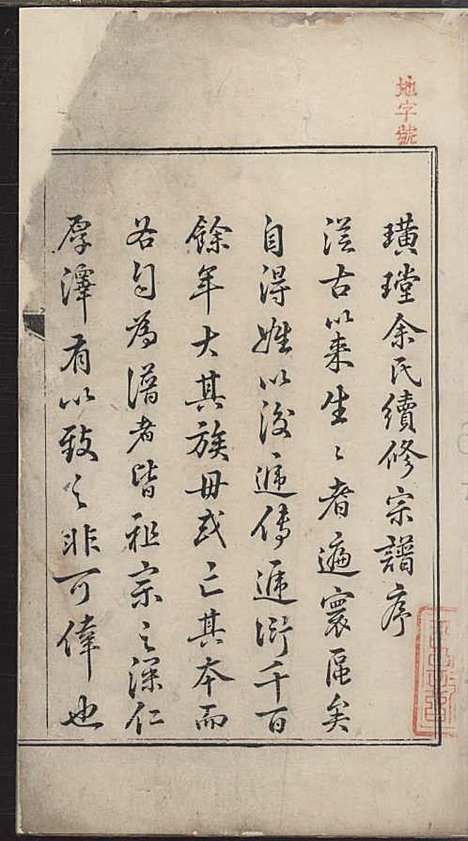 地字號
璜璫余氏續修宗譜序
從古以來生〻者遍寰區矣
自得姓以後遞傳遞衍千百
餘年大其族毋或亡其本而
各自為譜者皆祖宗之深仁
厚澤有以致之非可倖也